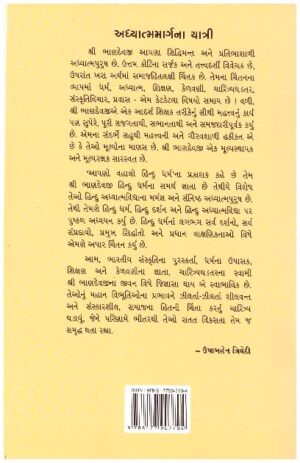 અધ્યાત્મમાર્ગના યાત્રી
શ્રી ભાણદેવજી આપણા સિદ્ધિમન્ત અને પ્રતિભાશાળી
અધ્યાત્મપુરુષ છે. ઉત્તમ કોટિના સર્જક અને તત્ત્વદર્શી વિવેચક છે,
ઉપરાંત ખરા અર્થમાં સમાજહિતલક્ષી ચિંતક છે. તેમના ચિંતનના
વ્યાપમાં ધર્મ, અધ્યાત્મ, શિક્ષણ, કેળવણી, ચારિત્ર્યઘડતર,
સંસ્કૃતિવિચાર, પ્રવાસ - એમ કેટકેટલા વિષયો સમાય છે ! વળી,
શ્રી ભાણદેવજીએ એક આદર્શ શિક્ષક તરીકેનું સૌથી મહત્ત્વનું કાર્ય
પણ સુપેરે, પૂરી સજગતાથી, સભાનતાથી અને સમજદારીપૂર્વક કર્યું
છે. એમના સંદર્ભે સહુથી મહત્ત્વની અને ગૌરવશાળી હકીકત એ
છે કે તેઓ મૂલ્યોના માણસ છે. શ્રી ભાણદેવજી એક મૂલ્યસ્થાપક
અને મૂલ્યરક્ષક સારસ્વત છે.
'આપણો વહાલો હિન્દુ ધર્મ'ના પ્રકાશક કહે છે તેમ
શ્રી ભાણદેવજી હિન્દુ ધર્મના સમર્થ જ્ઞાતા છે તેથીયે વિશેષ
તેઓ હિન્દુ અધ્યાત્મવિદ્યાના મર્મજ્ઞ અને સંનિષ્ઠ અધ્યાત્મપુરુષ છે.
તેથી તેમણે હિન્દુ ધર્મ, હિન્દુ દર્શન અને હિન્દુ અધ્યાત્મવિદ્યા પર
પુષ્કળ અધ્યયન કર્યું છે. હિન્દુ ધર્મનાં લગભગ સર્વ દર્શનો, સર્વ
સંપ્રદાયો, પ્રમુખ સિદ્ધાંતો અને પ્રધાન લાક્ષણિકતાઓ વિષે
એમણે અપાર ચિંતન કર્યું છે.
આમ, ભારતીય સંસ્કૃતિના પુરસ્કર્તા, ધર્મના ઉપાસક,
શિક્ષણ અને કેળવણીના જ્ઞાતા, ચારિત્ર્યઘડતરના સ્વામી
શ્રી ભાણદેવજીના જીવન વિષે જિજ્ઞાસા થાય એ સ્વાભાવિક છે.
તેઓનું મહાન વિભૂતિઓના પ્રભાવને ઝીલતાં-ઝીલતાં શીલવન્ત
અને સંસ્કારશીલ, સમાજના હિતની ચિંતા કરતું ચારિત્ર્ય
ઘડાયું, જેને પરિણામે ભીતરથી તેઓ સતત વિકસતા તેમ જ
સમૃદ્ધ થતા રહ્યા.
– ઉષાબહેન ત્રિવેદી